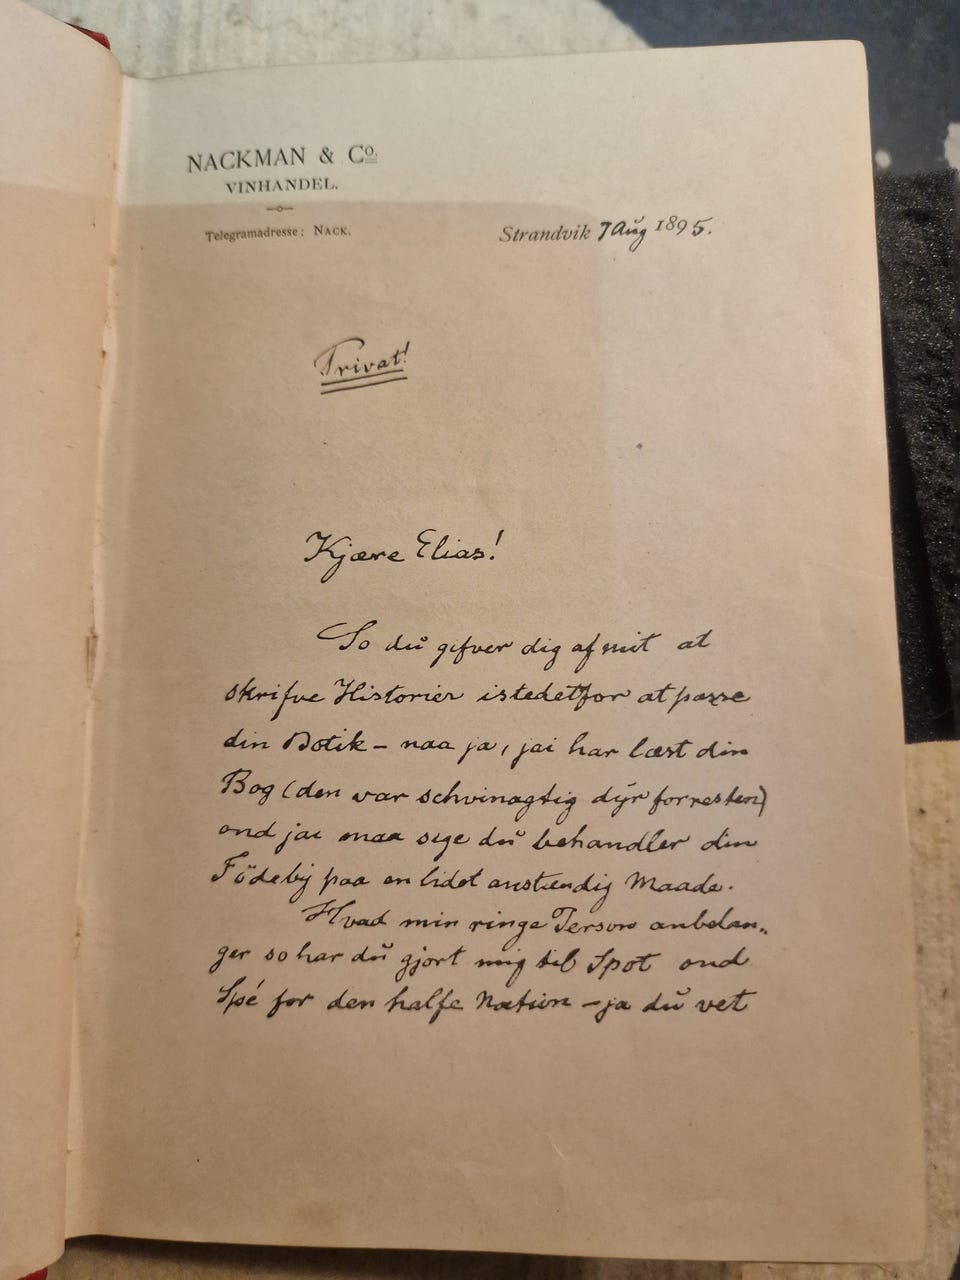 NACKMAN & Co.
VINHANDEL.
Telegramadresse: NACK.
Strandvik 7 Aug 1895.
Privat!
Kjære Elias!
So du gifver dig af mit at
skrifve Historier istedetfor at passe
din Botik – naa ja, jai har læst din
Bog (den var schvinagtig dýr forresten)
ond jai maa sige du behandler din
Födebÿ paa en lidet anstændig Maade.
Hvad min ringe Person anbelan„
ger so har du gjort mig til Spot ond
Spé for den halfe Nation – ja du vet